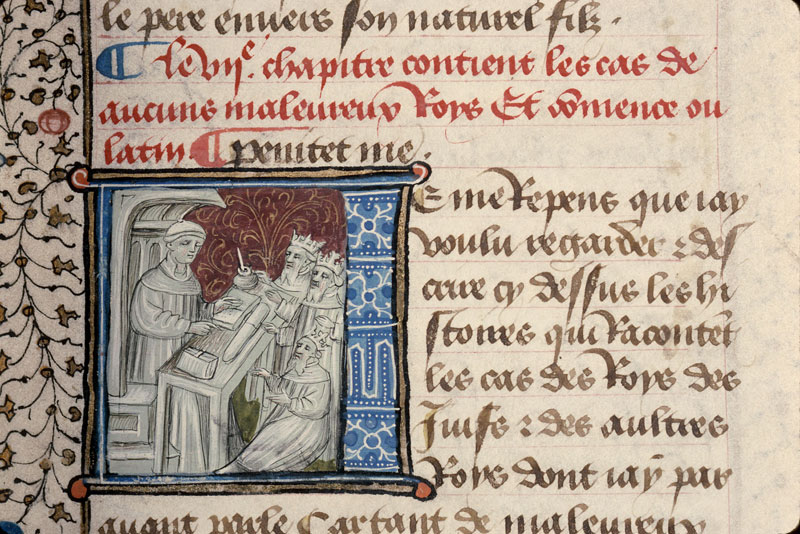 le pere enuers son naturel filz .
¶ le vijᵉ. chapitre contient les cas de
aucuns maleureux Roys Et cōmence ou
latin. ¶ penitet me .
E me Repens que iay
voulu regarder ⁊ des
crire cy dessus les hi
stoires qui Racontēt
les cas des Roys des
Juifs ⁊ des aultres
Roys dont iay par
auant parle Car tant de maleureux